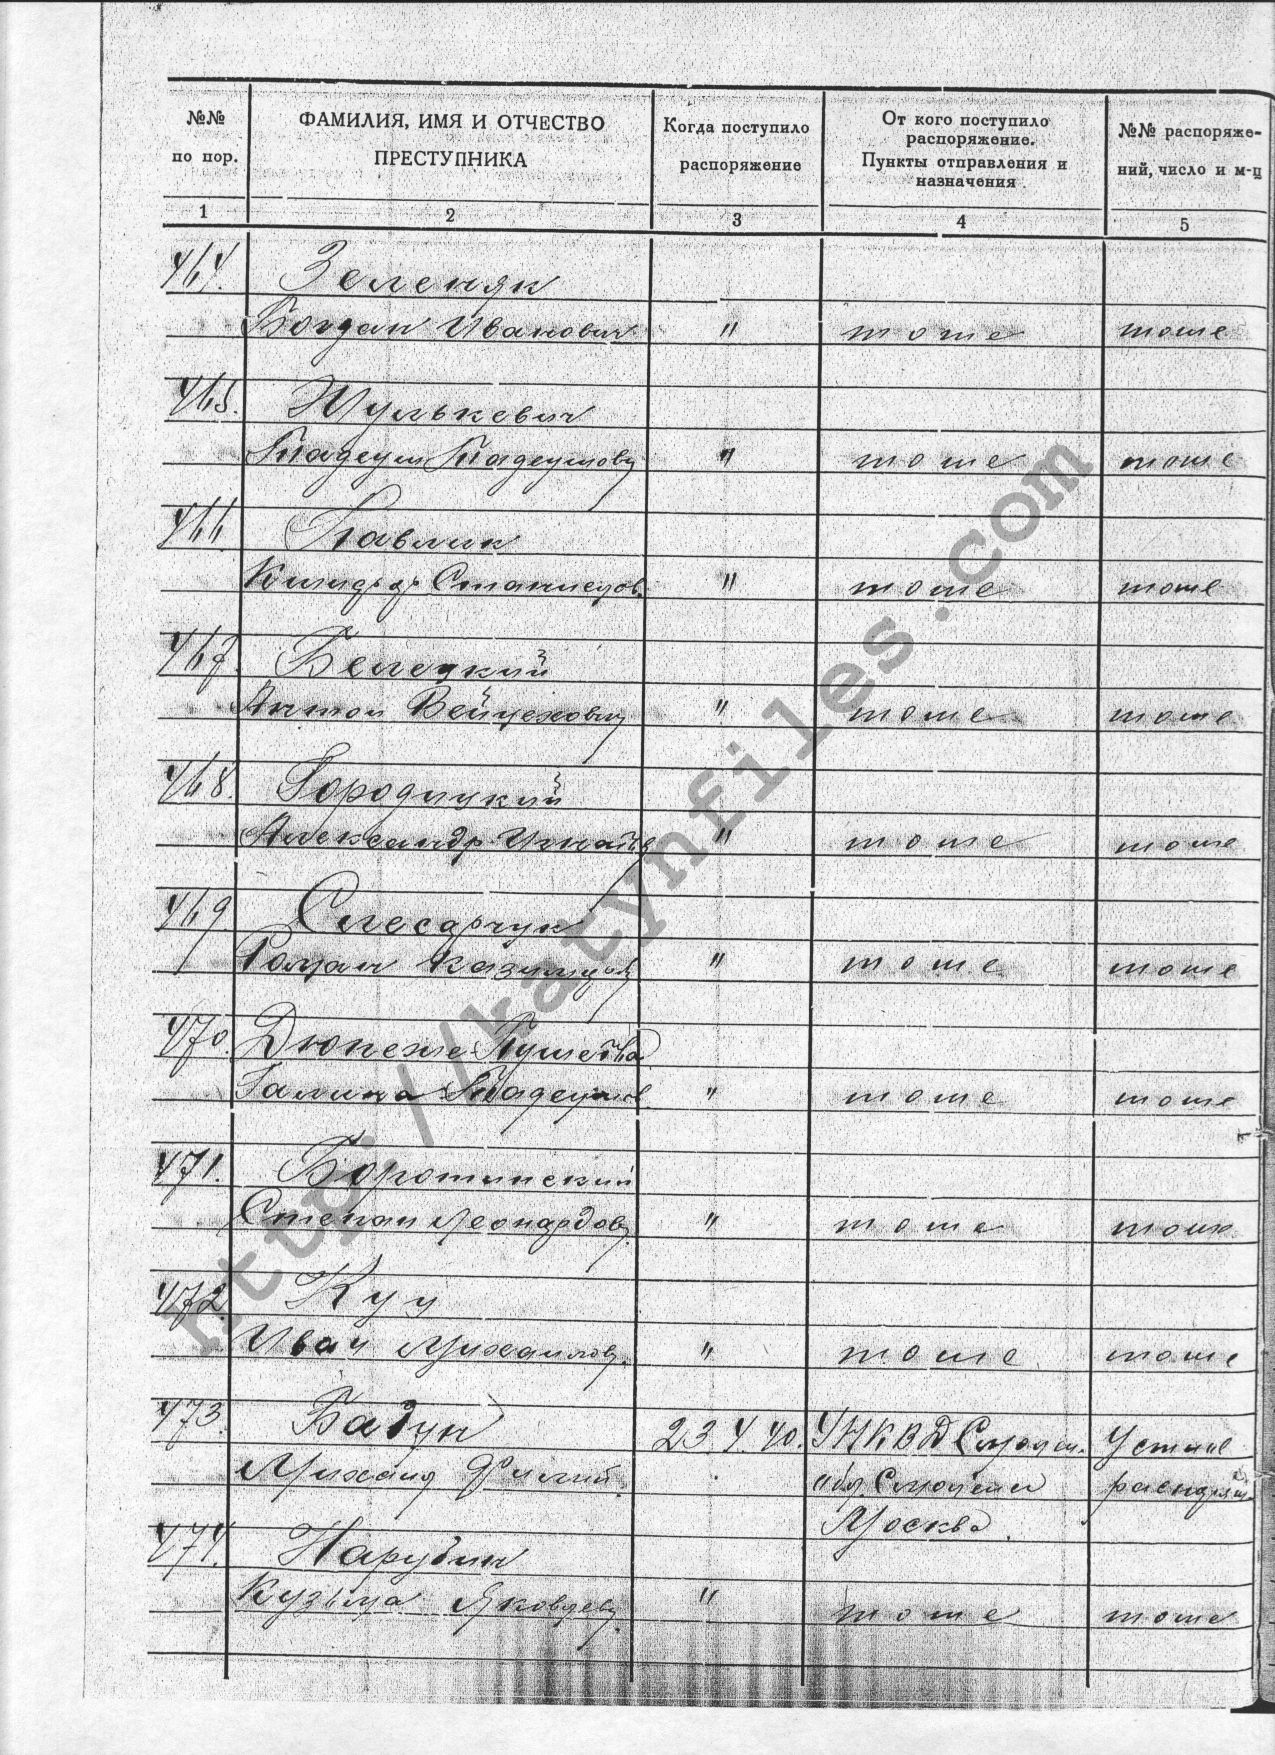 №№ по пор.
ФАМИЛИЯ, ИМЯ И ОТЧЕСТВО ПРЕСТУПНИКА
Когда поступило распоряжение
От кого поступило распоряжение. Пункты отправления и назначения
№№ распоряжений, число и м-ц
1 2 3 4 5
464. Зеленяк
Богдан Иванович " то же то же
465. Жулькевич
Тадеуш Тадеушович " то же то же
466 Павлик
Станислов. " то же то же
467. Белецкий
Антон Войцехович " то же то же
468. Городицкий
Александр Игнатьев " то же то же
469 Слесарчук
Роман Казимиров " то же то же
470.
Галина Тадеушов. " то же то же
471. Боротинский
Степан Леонардов. " то же то же
472 Куц
Иван Михайлов. " то же то же
473. Бадун 23.4.40. УНКВД Смолен. Устное
Михаил обл. Смоленск распоряж.
Москва.
474. Нарубин
Кузьма Яковлев. " то же то же
http://katynfiles.com